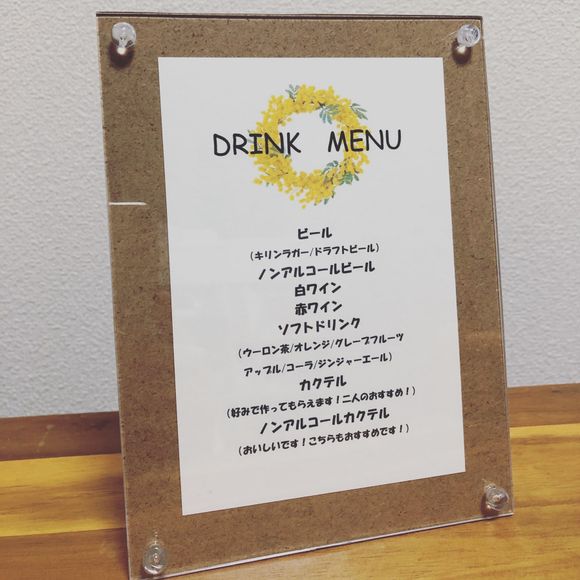 DRINK MENU
ビール
(キリンラガー/ドラフトビール)
ノンアルコールビール
白ワイン
赤ワイン
ソフトドリンク
(ウーロン茶/オレンジ/グレープフルーツ
アップル/コーラ/ジンジャーエール)
カクテル
(好みで作ってもらえます!二人のおすすめ!)
ノンアルコールカクテル
(おいしいです!こちらもおすすめです!)